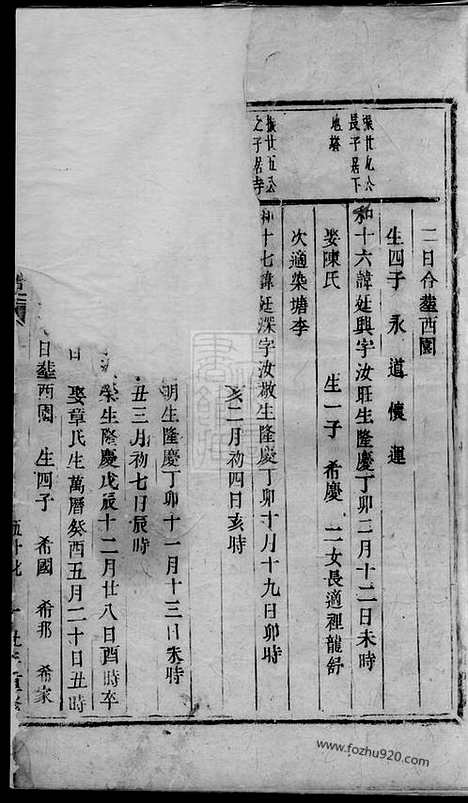 二日合塟西園
生四子 永 道 懷 運
渠廿九公
長子居下
地塔
和十六諱廷興字汝旺生隆慶丁卯二月十二日未時
娶陳氏 生一子 希慶 二女長適裡龍舒
次適染塘李
振廿五公
之子居寺
和十七諱廷深字汝敬生隆慶丁卯十月十九日卯時
亥二月初四日亥時
明生隆慶丁卯十一月十三日未時
丑三月初七日辰時
榮生隆慶戊辰十二月廿八日酉時卒
娶章氏生萬曆癸酉五月二十日丑時
日塟西園 生四子 希國 希邦 希家
www.fozhu920.com